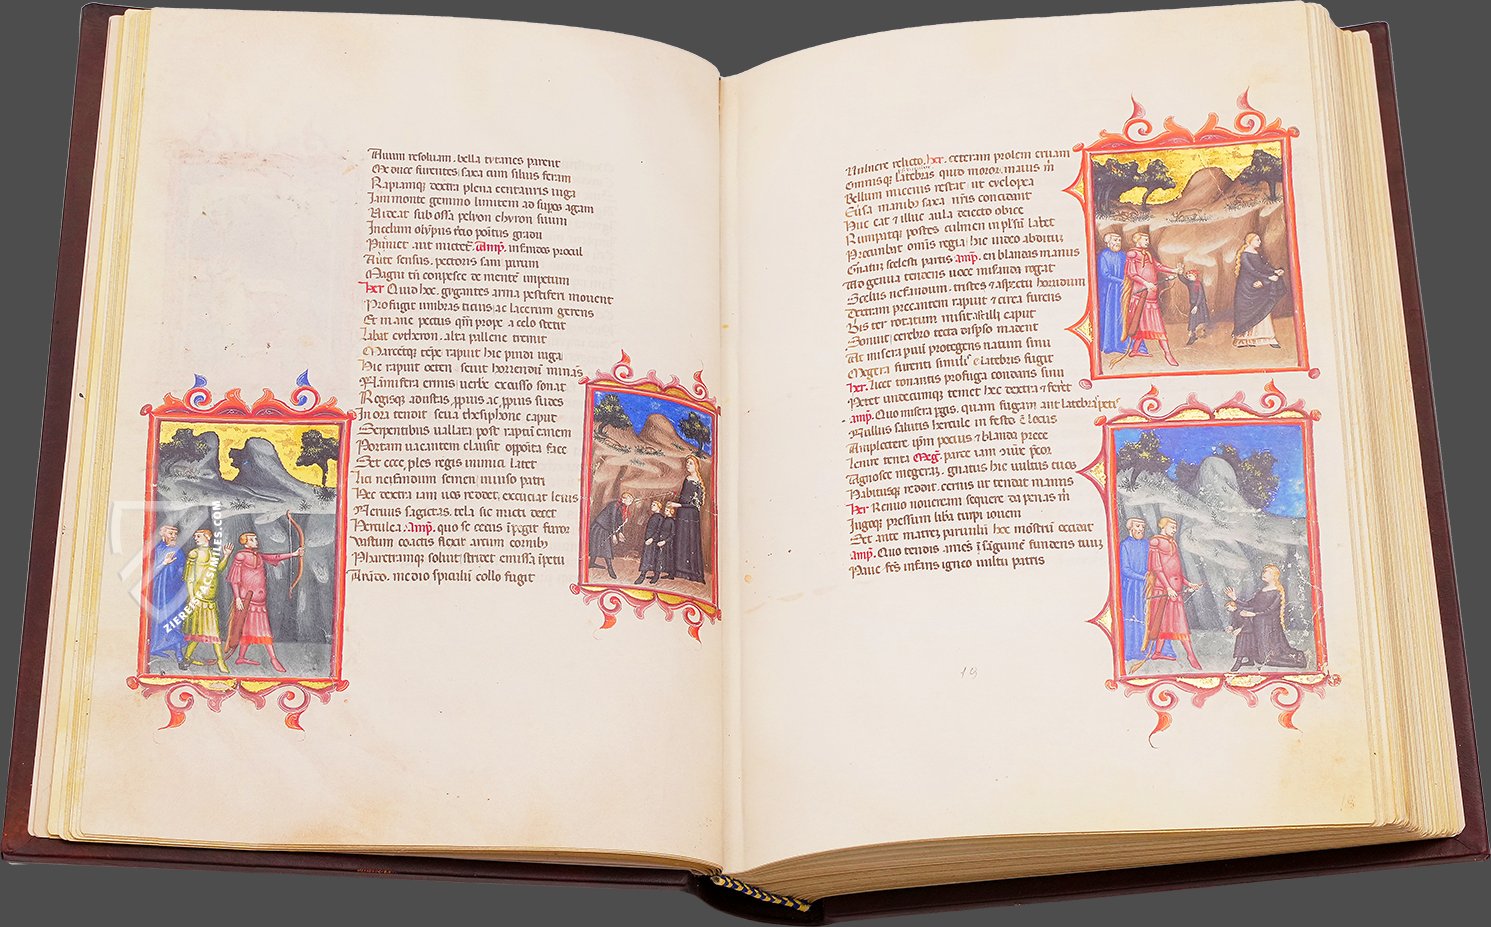 Avum resoluam. bella tytanes parent
Me duce furentes saxa cum siluis feram
Rapiamq; dextra plena centauris iuga
Iam monte gemino limitem ad supos agam
Videat sub ossa pelyon chyron suum
In celum olympus tercio positus gradu
aut mittet. Amp. infandos procul
Auerte sensus. pectoris sani parum
Magni tamen compesce dementem impetum
Her Quid hoc. gygantes arma pestiferi mouent
Profugit umbras ticius ac lacerum gerens
Et inane pectus quam prope a celo stetit
Labat cytheron. alta pallene tremit
Marcetq; tempe rapuit hic pindi iuga
Hic rapuit oeten. seuit horrendum minas
Flamifera erinis uerbe excusso sonat
Rogisq; adustas propius ac propius sudes
In ora tendit. seua thesiphone caput
Serpentibus uallata post raptum canem
Portam uacantem clausit opposita face
Set ecce proles regis inimici latet
Lici nefandum semen inuiso patri
Hec dextra iam uos reddet. excuciat leuis
Neruus sagittas. tela sic mitti decet
Herculea. Amp. quo se cecus impegit furor
Vastum coactis flexit arcum cornibus
Pharetramq; soluit stridet emissa impetu
Arundo. medio spiculum collo fugit
ZIEREIS FACSIMILES.COM
Vulnere relicto. her. ceteram prolem eruam
Omnisq; latebras quid moror. maius mihi
Bellum micenis restat ut cyclopea
Euersa manibus saxa nostris concidant
Huc eat et illuc aula deiecto obice
Rumpatq; postes culmen impulsum labet
Procumbat omnis regia hic uideo abditum
Gnatum scelesti patris amp. en blandas manus
Ad genua tendens uoce miseranda rogat
Scelus nefandum. tristes et aspectu horridum
Dextera precantem rapuit et circa furens
Bis ter rotatum misit ast illi caput
Sonuit cerebro tecta disperso madent
At misera paruum protegens natum sinu
Megera furenti similis e latebris fugit
her. Licet tonantis profuga condaris sinu
Petet undecumq; temet hec dextra et feret
amp. Quo misera pergis. quam fugam aut latebram petis
Nullus salutis hercule infesto est locus
Amplectere ipsum pocius et blanda prece
Lenire tenta Meg. parce iam coniux precor
Agnosce megeram. gnatus hic uultus tuos
Habitusq; reddit. cernis ut tendat manus
Her Teneo nouercam sequere da penas mihi
Iugoq; pressum libera turpi iouem
Set ante matrem paruulum hoc monstrum occidat
amp. Quo tendis amens sanguinem fundens tuum
Pauefactus infans igneo uultu patris
19
18